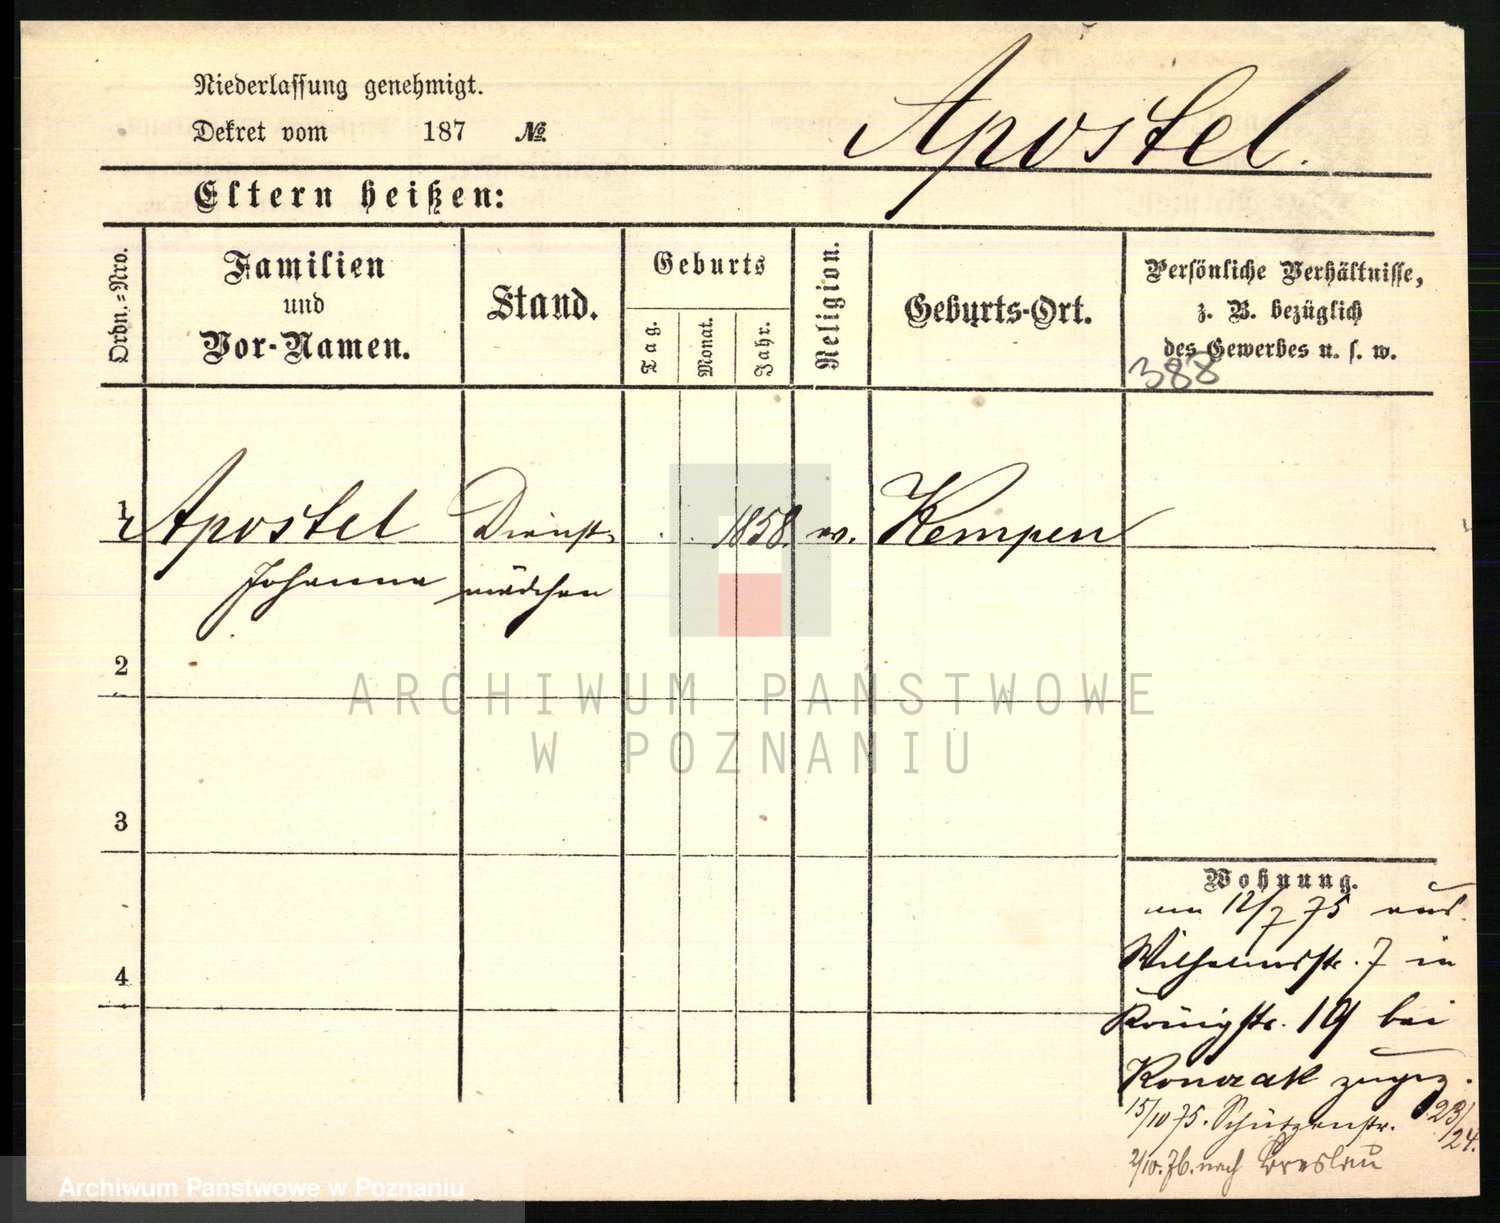 Niederlassung genehmigt.
Dekret vom 187 №
Apostel.
Eltern heißen:
Ordn.=Nro.
Familien
und
Vor-Namen.
Stand.
Geburts
Tag.
Monat.
Jahr.
Religion.
Geburts-Ort.
Persönliche Verhältnisse,
z. B. bezüglich
des Gewerbes u. s. w.
388
1 Apostel Dienst 1858. ev. Kempen
Johanna mädchen
2
ARCHIWUM PAŃSTWOWE
W POZNANIU
3
Wohnung.
am 12/7 75 aus
4
Wilhelmsstr. 7 in
Königstr. 19 bei
zugez.
15/10 75. Schützenstr. 23/24.
2/10. 76. nach Breslau
Archiwum Państwowe w Poznaniu